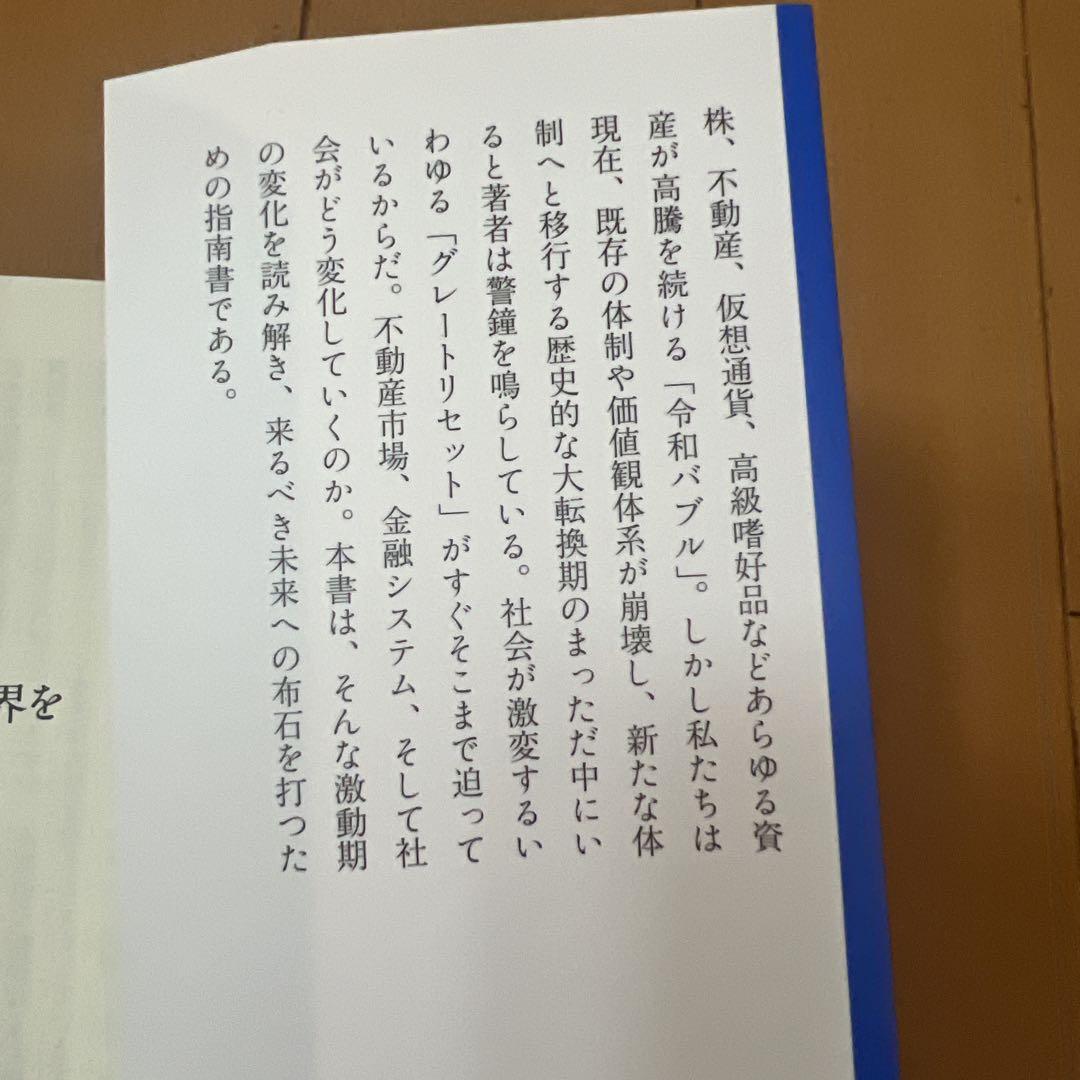 株、不動産、仮想通貨、高級嗜好品などあらゆる資
産が高騰を続ける「令和バブル」。しかし私たちは
現在、既存の体制や価値観体系が崩壊し、新たな体
制へと移行する歴史的な大転換期のまっただ中にい
ると著者は警鐘を鳴らしている。社会が激変するい
わゆる「グレートリセット」がすぐそこまで迫って
いるからだ。不動産市場、金融システム、そして社
会がどう変化していくのか。本書は、そんな激動期
の変化を読み解き、来るべき未来への布石を打つた
めの指南書である。
界を